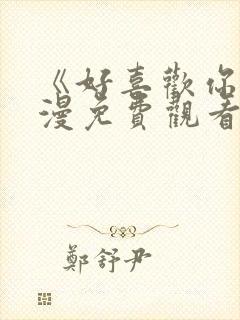 《好喜歡你
漫免費觀看
鄭舒尹